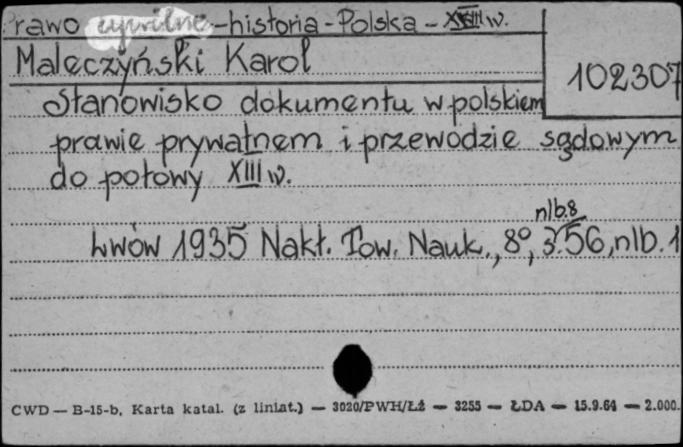 Prawo cywilne - historia - Polska - XIII w.
Maleczyński Karol
102307
Stanowisko dokumentu w polskiem
prawie prywatnem i przewodzie sądowym
do połowy XIII w.
nlb.8
Lwów 1935 Nakł. Tow. Nauk., 8°, s. 56, nlb. 1
CWD — B-15-b. Karta katal. (z liniat.) — 3020/PWH/ŁŻ — 3255 — ŁDA — 15.9.64 — 2.000.